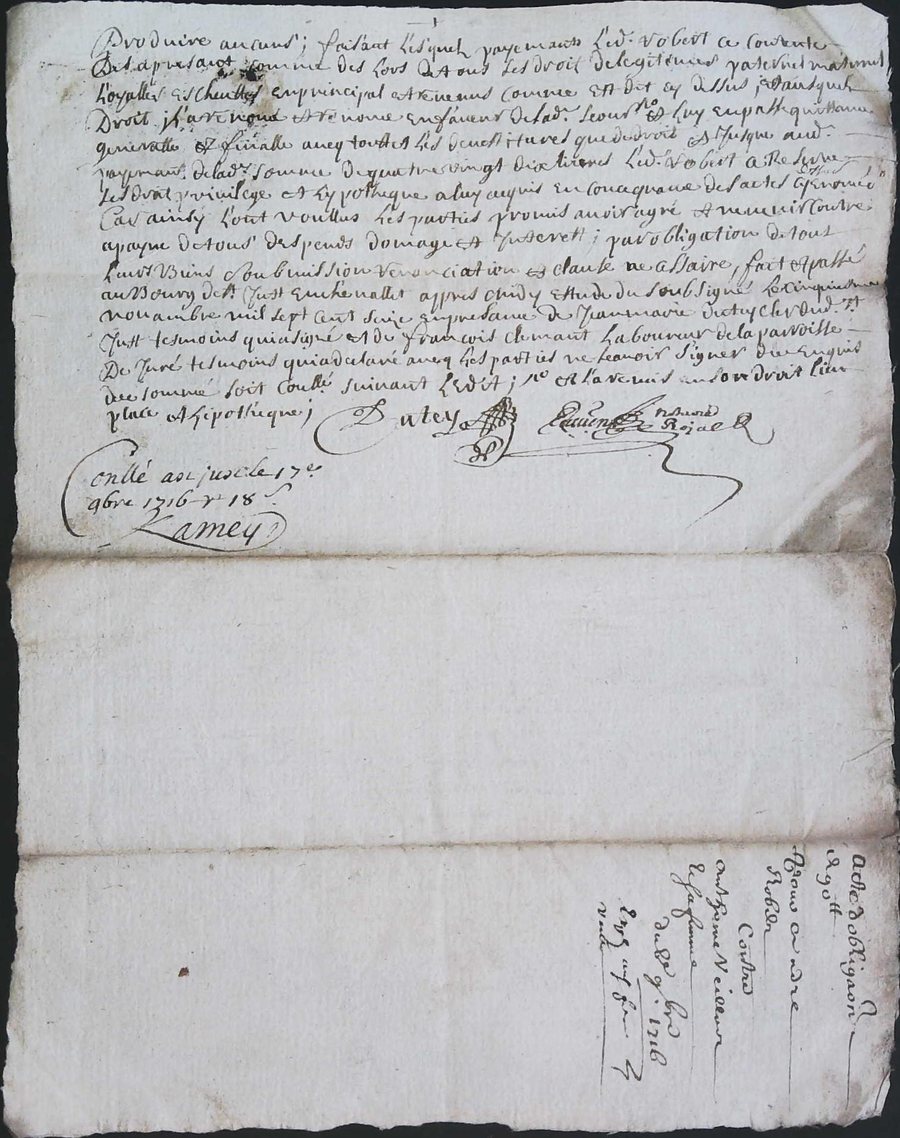 Produire aucuns ; faisant lesquels payemants led. Robert a consente
Des apresant comme des lors de tous les droit de legitimes paternel maternel
Loyalles escheuttes en principal et revenus comme est dit cy dessus, et ausquels
Droit il a renoncé et renonce en faveur de lad. et luy en passe quittance
generalle et finalle avecq touttes les de droit et jusque aud.
payemant de lad. somme de quatre vingt dix livres led. Robert a Reserve
les droit privilege et hypotheque a luy acquis en des actes
Car ainsy l'ont voullus les parties promis avoir agré et revenir contre
a payne de tous despends domage et Interest ; par obligation de tout
leurs Biens soubmission renonciation et clause necessaire, fait et passé
au Bourg de St Just en chevallet appres midy estude du soubsigné le cinquieme
novambre mil sept cent seize en presance de Jeanmarie clerc dud. St
Just tesmoins qui a signé et de françois clemant Laboureur de la parroisse
De Juré tesmoins qui a declaré avecq les parties ne scavoir signer de ce enquis
de ce sommé soit conllé suivant l'Edit ; et l'a remis en son droit lieu
place et hipotheque ;
notaire Rojal
Conllé a st just le 17e
9bre 1716 r 18 s
Ramey
acte d'obligaon
Pour andre
Robert
Contre
anthoine
et sa femme
du 5e 9bre 1716